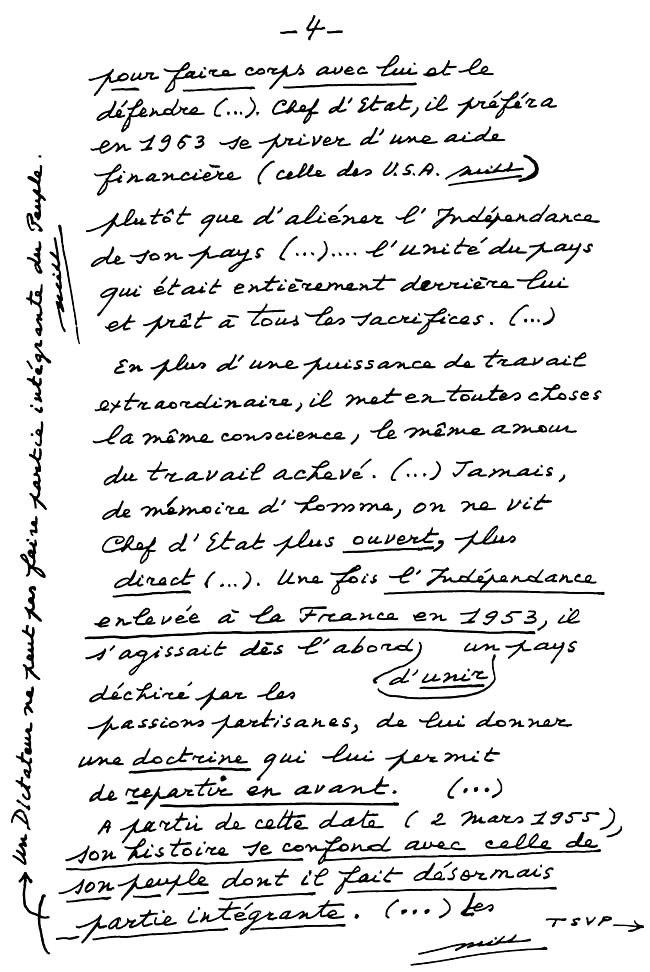 - 4 -
pour faire corps avec lui et le
défendre (...). Chef d'Etat, il préféra
en 1963 se priver d'une aide
financière (celle des U.S.A.
plutôt que d'aliéner l'Indépendance
de son pays (...).... l'unité du pays
qui était entièrement derrière lui
et prêt à tous les sacrifices. (...)
En plus d'une puissance de travail
extraordinaire, il met en toutes choses
la même conscience, le même amour
du travail achevé. (...) Jamais,
de mémoire d'homme, on ne vit
Chef d'Etat plus ouvert, plus
direct (...). Une fois l'Indépendance
enlevée à la France en 1953, il
s'agissait dès l'abord, d'unir un pays
déchiré par les
passions partisanes, de lui donner
une doctrine qui lui permit
de repartir en avant. (...)
A partir de cette date (2 mars 1955),
son histoire se confond avec celle de
son peuple dont il fait désormais
partie intégrante. (...) Les
TSVP →
→ Un Dictateur ne peut pas faire partie intégrante du Peuple.